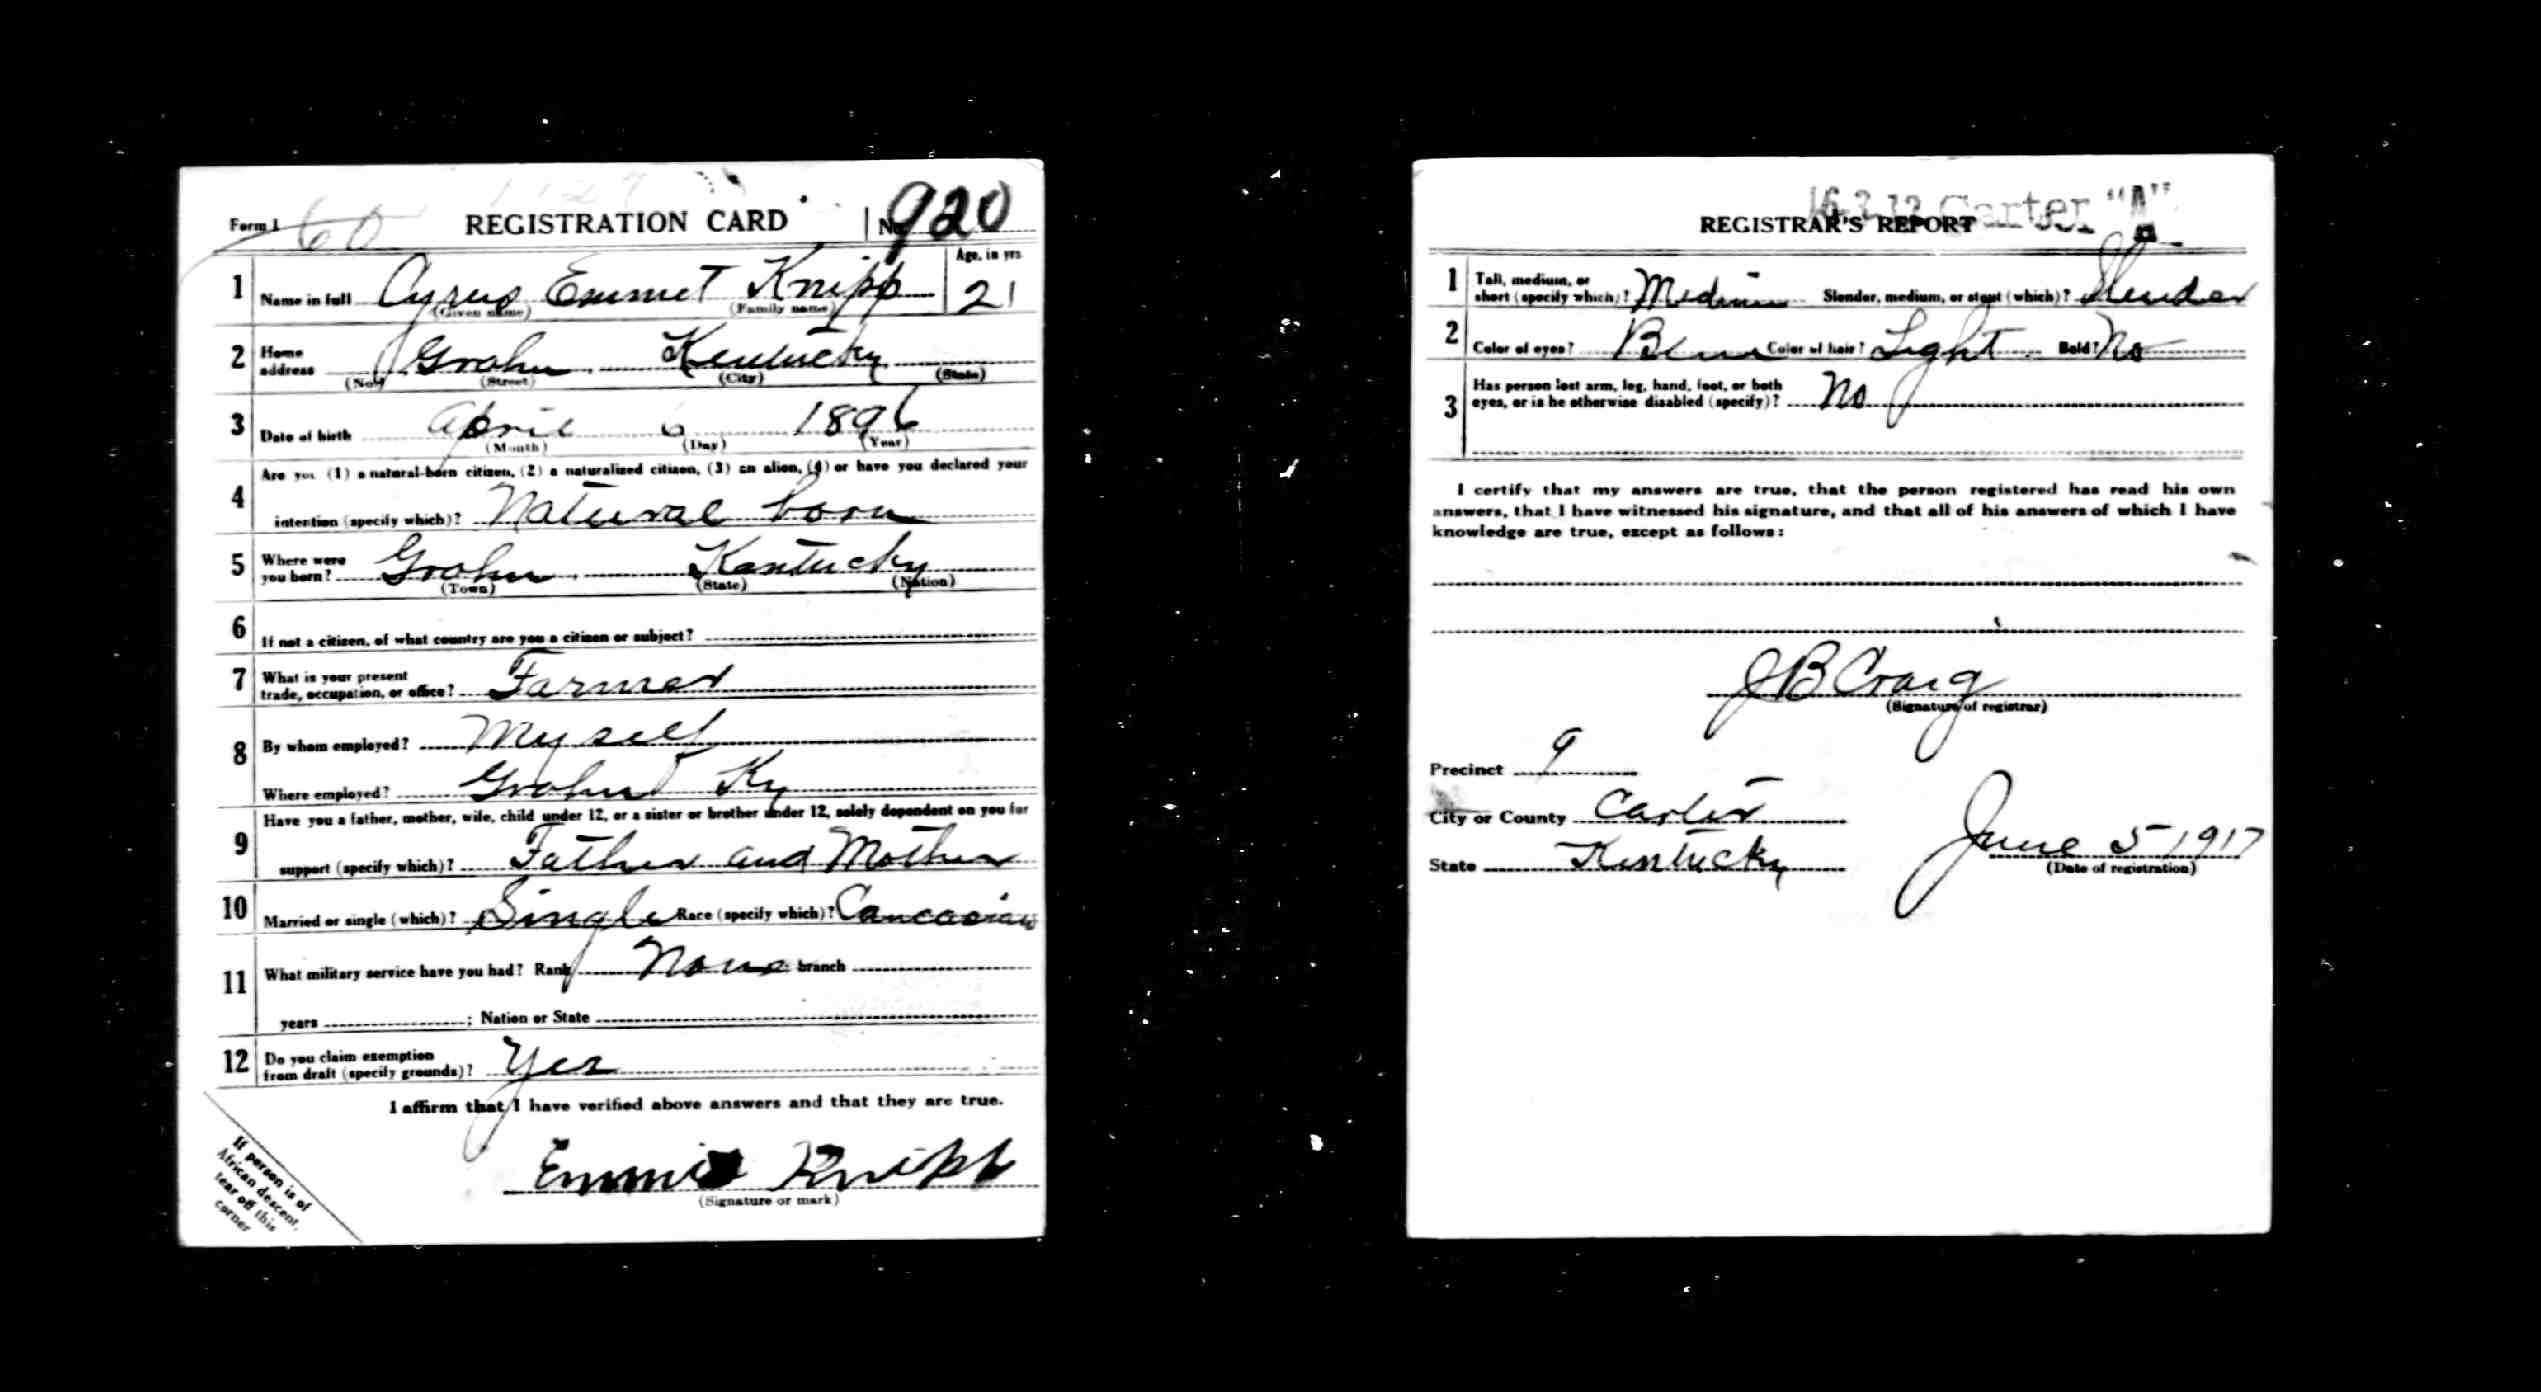 Form 1 60 REGISTRATION CARD No. 920
1 Name in full Cyrus Emmet Knipp Age, in yrs. 21
(Given name) (Family name)
2 Home address Grahn Kentucky
(No.) (Street) (City) (State)
3 Date of birth April 6 1896
(Month) (Day) (Year)
Are you (1) a natural-born citizen, (2) a naturalized citizen, (3) an alien, (4) or have you declared your
4 intention (specify which)? Natural born
5 Where were you born? Grahn Kentucky
(Town) (State) (Nation)
6 If not a citizen, of what country are you a citizen or subject?
7 What is your present trade, occupation, or office? Farmer
8 By whom employed? Myself
Where employed? Grahn Ky
Have you a father, mother, wife, child under 12, or a sister or brother under 12, solely dependent on you for
9 support (specify which)? Father and Mother
10 Married or single (which)? Single Race (specify which)? Caucasian
11 What military service have you had? Rank None branch
years ; Nation or State
12 Do you claim exemption from draft (specify grounds)? Yes
I affirm that I have verified above answers and that they are true.
Emmit Knipp
(Signature or mark)
If person is of
African descent,
tear off this
corner
16-3-12 Carter "A"
REGISTRAR'S REPORT
1 Tall, medium, or short (specify which)? Medium Slender, medium, or stout (which)? Slender
2 Color of eyes? Blue Color of hair? Light Bald? No
3 Has person lost arm, leg, hand, foot, or both
eyes, or is he otherwise disabled (specify)? No
I certify that my answers are true, that the person registered has read his own
answers, that I have witnessed his signature, and that all of his answers of which I have
knowledge are true, except as follows:
J B Craig
(Signature of registrar)
Precinct 9
City or County Carter
State Kentucky June 5 1917
(Date of registration)